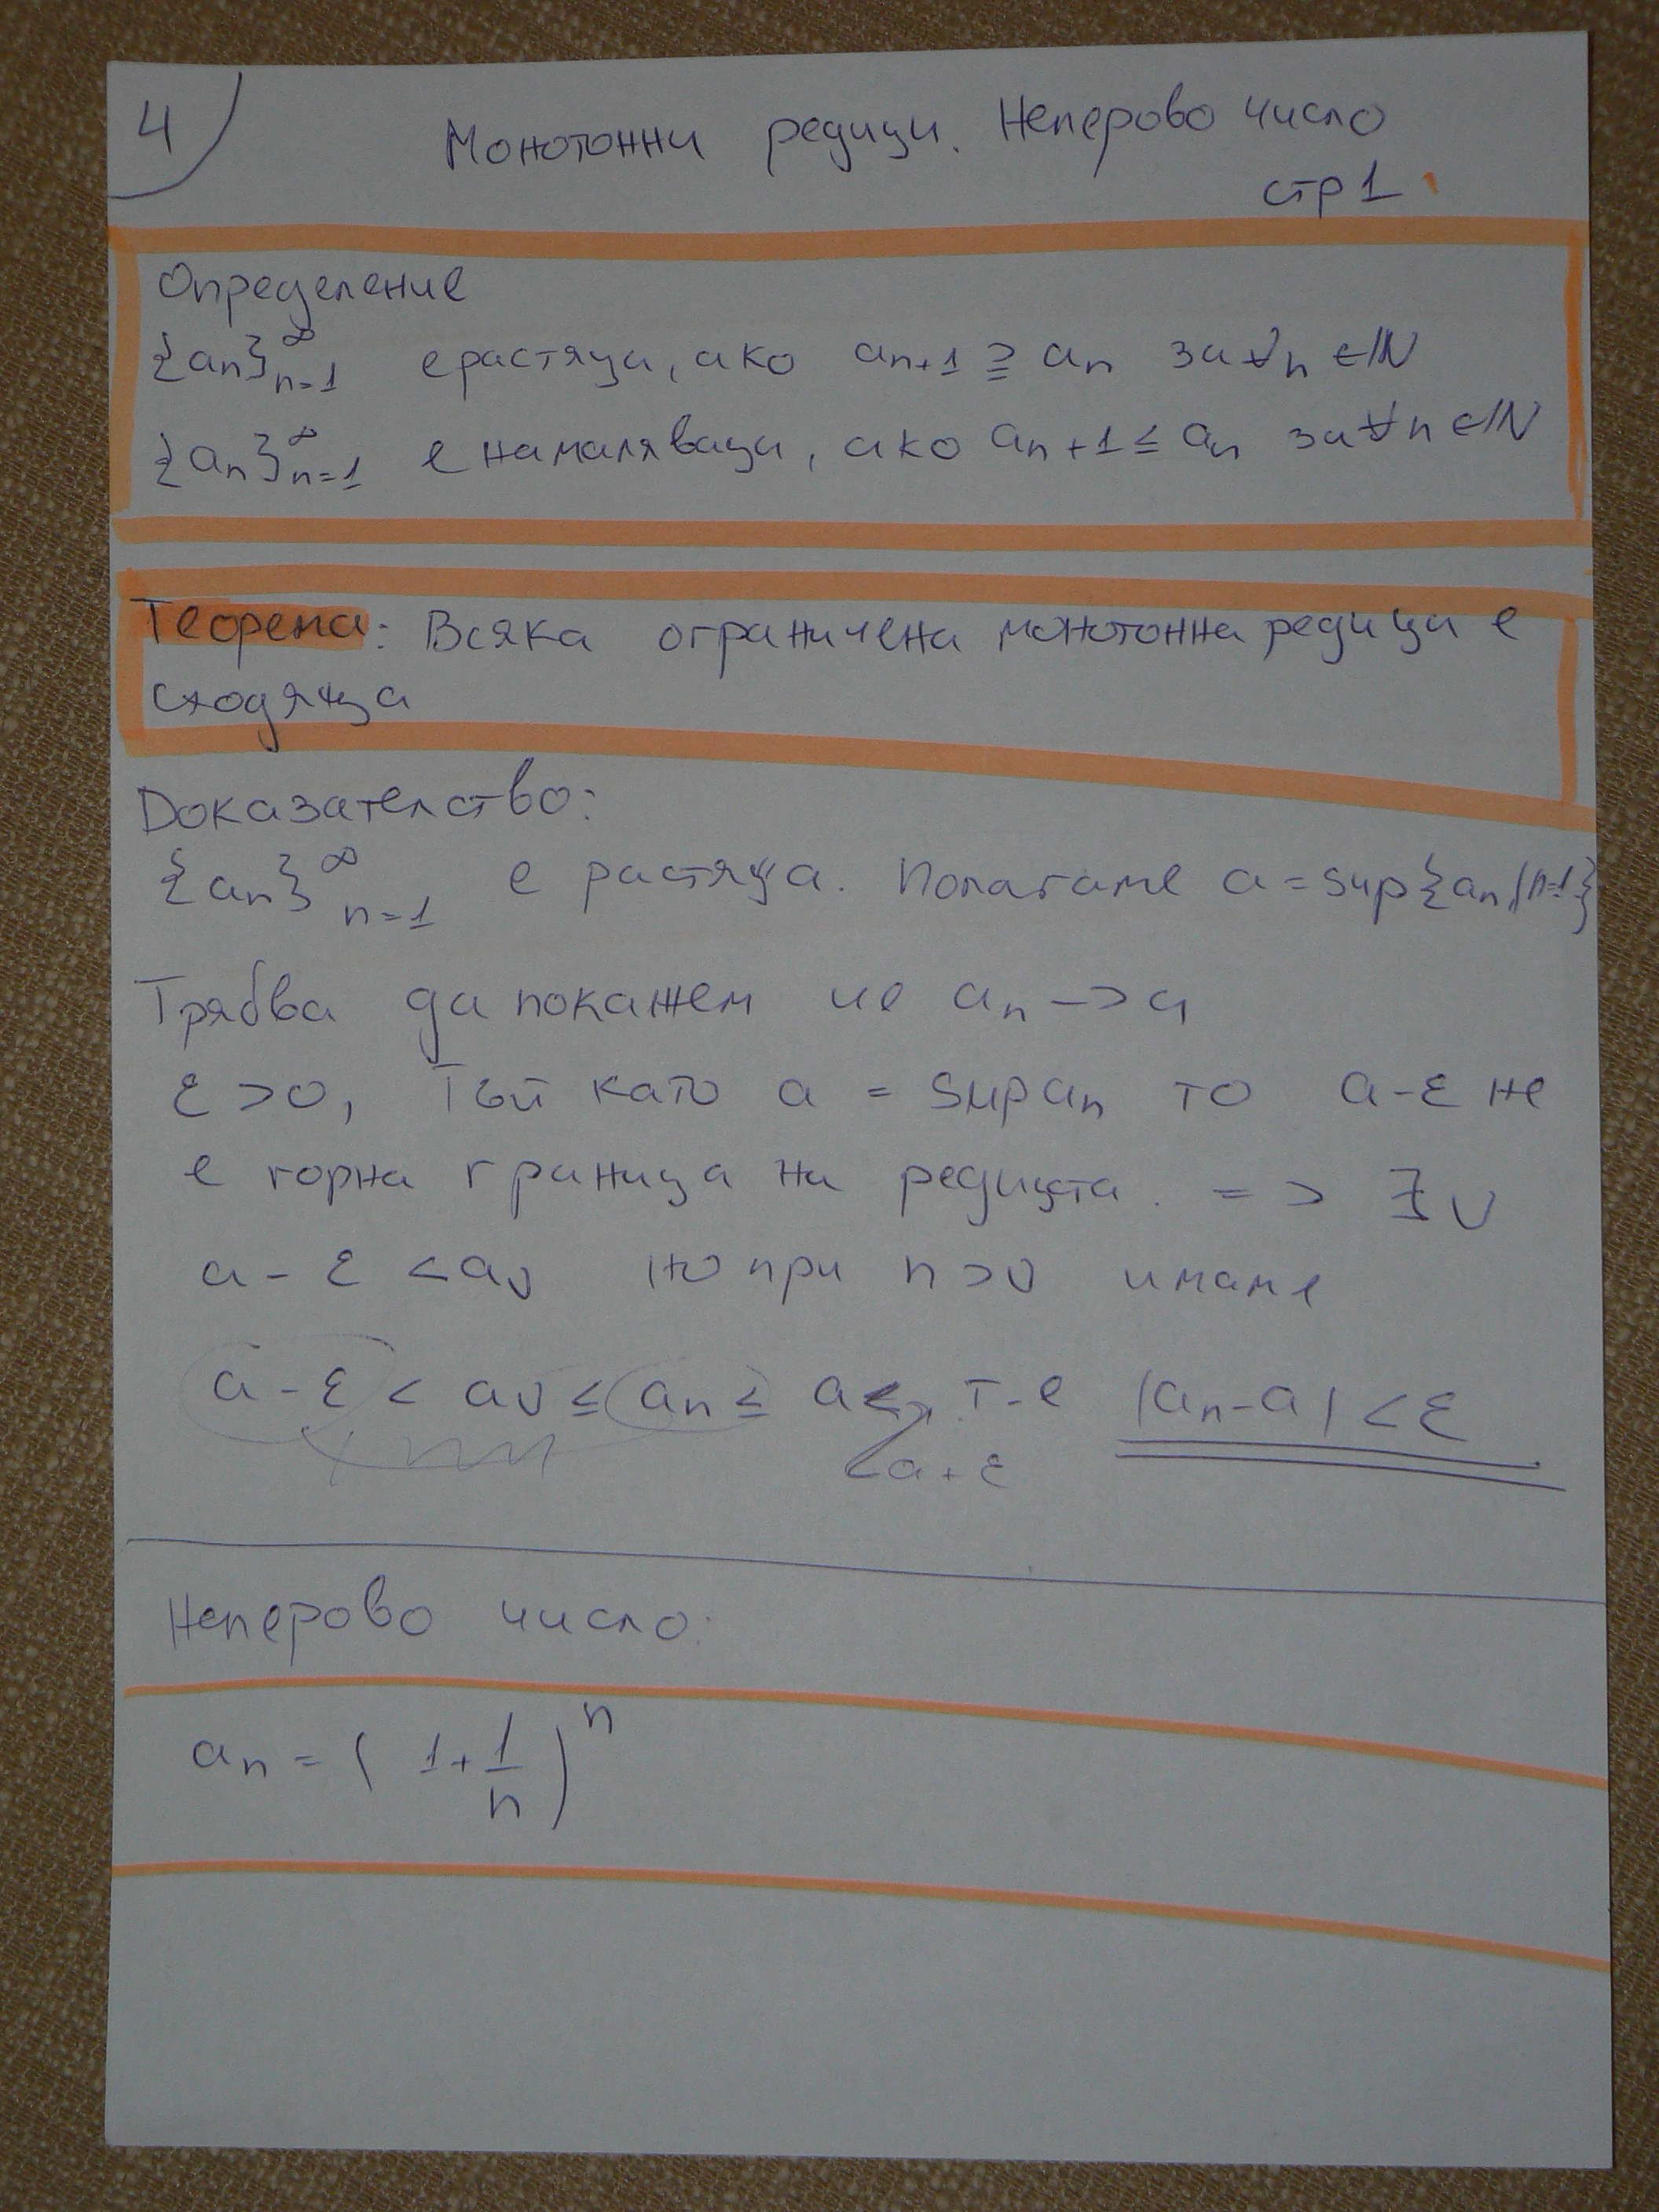 4)
Монотонни редици. Неперово число
стр 1
Определение
{an}∞n=1 е растяща, ако an+1 ≥ an за ∀n ∈ ℕ
{an}∞n=1 е намаляваща, ако an+1 ≤ an за ∀n ∈ ℕ
Теорема: Всяка ограничена монотонна редица е
сходяща
Доказателство:
{an}∞n=1 е растяща. Полагаме a = sup{an, n=1}
Трябва да покажем че an -> a
ε > 0, Тъй като a = sup an то a-ε не
е горна граница на редицата. => ∃ ν
a - ε < aν но при n > ν имаме
a - ε < aν ≤ an ≤ a < т-е |an-a| < ε
< a + ε
Неперово число:
an = (1 + 1/n)^n